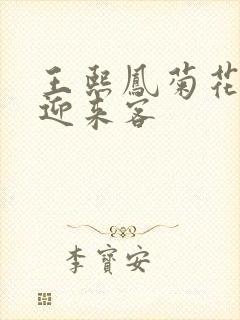 王熙鳳菊花
迎来客
李寶安